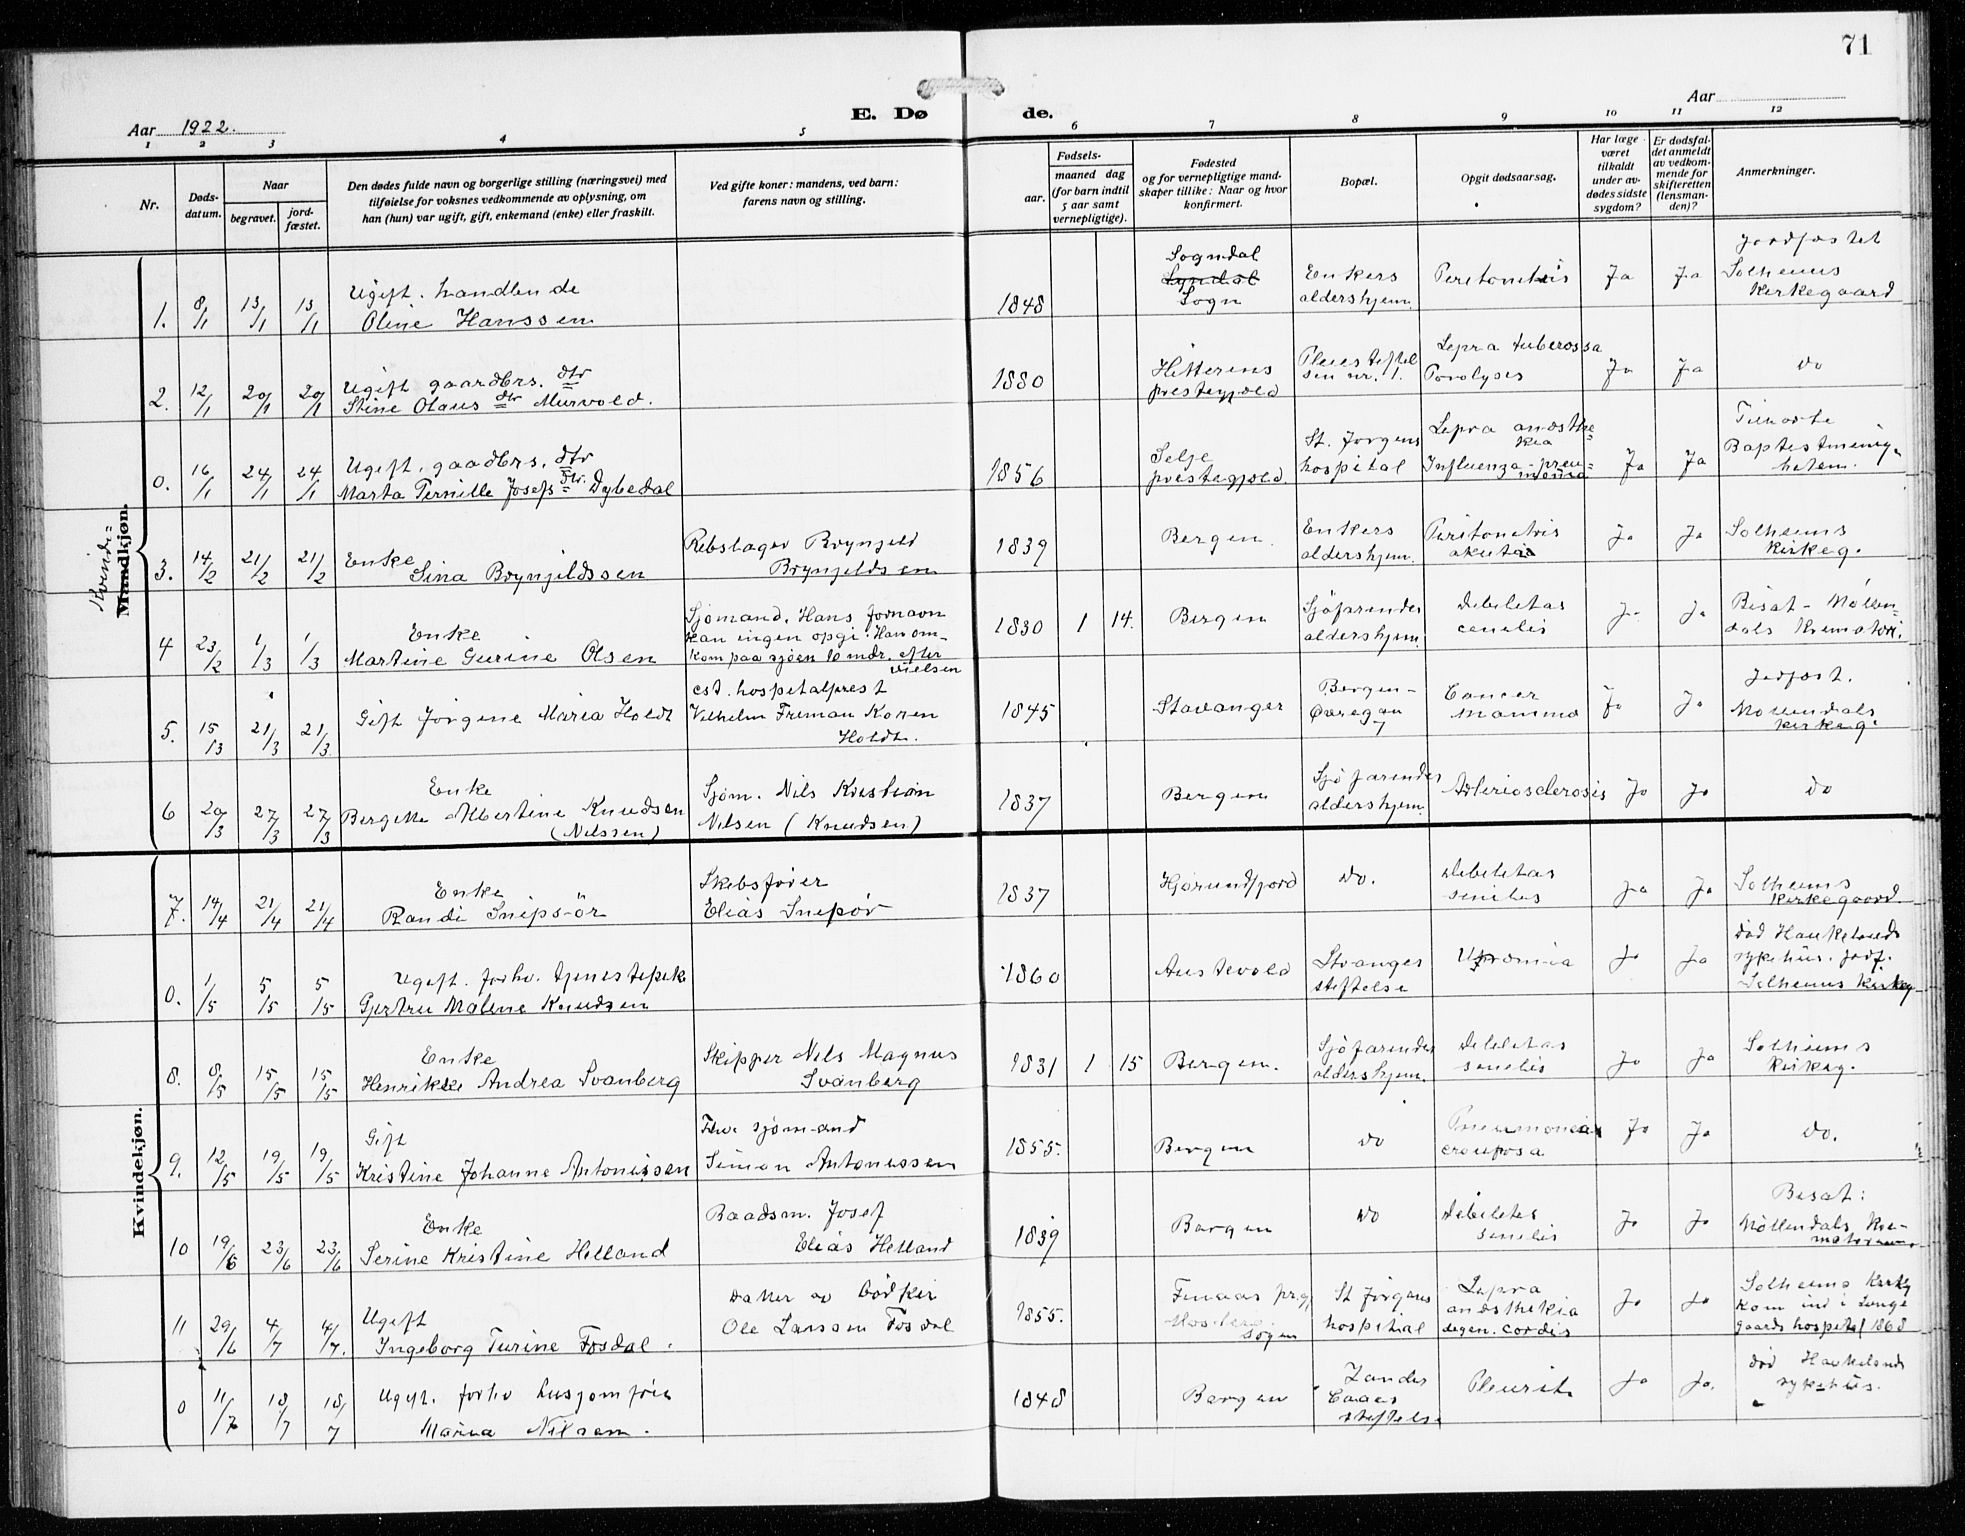 71
Aar 1922.
E. Døde.
Aar
1 2 3 4 5 6 7 8 9 10 11 12
Nr.
Døds-
datum.
Naar
begravet.
jord-
fæstet.
Den dødes fulde navn og borgerlige stilling (næringsvei) med
tilføielse for voksnes vedkommende av oplysning, om
han (hun) var ugift, gift, enkemand (enke) eller fraskilt.
Ved gifte koner: mandens, ved barn:
farens navn og stilling.
Fødsels-
aar.
maaned dag
(for barn indtil
5 aar samt
vernepligtige).
Fødested
og for vernepligtige mand-
skaper tillike: Naar og hvor
konfirmert.
Bopæl.
Opgit dødsaarsag.
Har læge
været
tilkaldt
under av-
dødes sidste
sygdom?
Er dødsfal-
det anmeldt
av vedkom-
mende for
skifteretten
(lensman-
den)?
Anmerkninger.
Kvinde=
Mandkjøn.
1. 8/1 13/1 13/1 Ugift. handlende
Oline Hanssen
1848
Sogndal
Syndal
Sogn
Enkers
aldershjem.
Peritonitis
Ja Ja
Jordfæstet
Solheims
Kirkegaard
2. 12/1 20/1 20/1 Ugift gaardbrs. dtr
Stine Olaus dtr Murvold.
1880
Hitterens
prestegjeld
Pleiestiftel
sen nr. 1.
Lepra tuberossa
Paralyses
Ja Ja do
0. 16/1 24/1 24/1 Ugift. gaadbrs. dtr
Marta Pernille Josefs dtr. Dybedal
1856
Selje
prestegjeld.
St. Jørgens
hospital
Lepra anæsthe=
kia
Influenza-pneu=
monia
Ja Ja
Tilhørte
Baptistmenig-
heten.
3. 14/2 21/2 21/2 Enke
Sina Brynjeldssen
Rebslager Brynjeld
Brynjeldsen
1839
Bergen.
Enkers
aldershjem.
Peritonetris
akuta
Ja Ja
Solheims
kirkeg.
4 23/2 1/3 1/3 Enke
Martine Gurine Olsen
Sjømand. Hans fornavn
kan ingen opgi. Han om-
kom paa sjøen 10 mdr. efter
vielsen
1830 1 14.
Bergen
Sjøfarendes
aldershjem.
Debeletas
cenelis
Ja Ja
Bisat - Møllen-
dals Krematori.
5. 15/3 21/3 21/3 Gift Jørgene Maria Holdt
cst. hospitalprest
Vilhelm Friman Koren
Holdt.
1845
Stavanger
Bergen-
Øvregan
7
Cancer
Mamma
Ja Ja
Jodfæst.
Møllendals
kirkeg.
6 20/3 27/3 27/3 Enke
Bergitte Albertine Knudsen
(Nilssen)
Sjøm. Nils Kristian
Nilsen (Knudsen)
1837
Bergen
Sjøfarendes
aldershjem.
Arteriosclerosis
Ja Ja do
Kvindekjøn.
7. 14/4 21/4 21/4 Enke
Randi Snipsør
Skibsfører
Elias Snipør
1837
Hjørundfjord
do.
Debeletas
senilis
Ja Ja
Solheims
kirkegaard.
0. 1/5 5/5 5/5 Ugift. forhv. tjenestepik
Gjertru Malene Knudsen
1860
Austevold
Stranges
stiftelse
Uræmia
Ja Ja
død Haukelands
sykehus. jorf.
Solheims kirkeg
8. 8/5 15/5 15/5 Enke
Henrikke Andrea Svanberg
Skipper Nils Magnus
Svanberg
1831 1 15
Bergen.
Sjøfarendes
aldershjem.
Debeletas
senelis
Ja Ja
Solheims
kirkeg.
9. 12/5 19/5 19/5 Gift
Kristine Johanne Antonissen
Fhv. sjømand
Simon Antonissen
1855.
Bergen
do
Pneumonia
crouposa
Ja Ja do.
10 19/6 23/6 23/6 Enke
Serine Kristine Helland
Baadsm. Josef
Elias Helland
1839
Bergen
do
Debeletes
senilis
Ja Ja
Bisat:
Møllendals Kre-
matorium.
11 29/6 4/7 4/7. Ugift
Ingeborg Turine Fosdal.
Datter av Bødker
Ole Larssen Fosdal
1855.
Finaas pr.gj
Mosters
sogn
St Jørgens
hospital
Lepra
anæsthekia
degen. cordis
Ja Ja
Solheims kirkeg
kom ind i Lunge
gaards hospital 1868
0 11/7 18/7 18/7 Ugift. forhv husjomfru
Marina Nilssen.
1848
Bergen
Zander
Caaes
stiftelse
Pleurit
Ja Ja.
død Haukelands
sykehus.